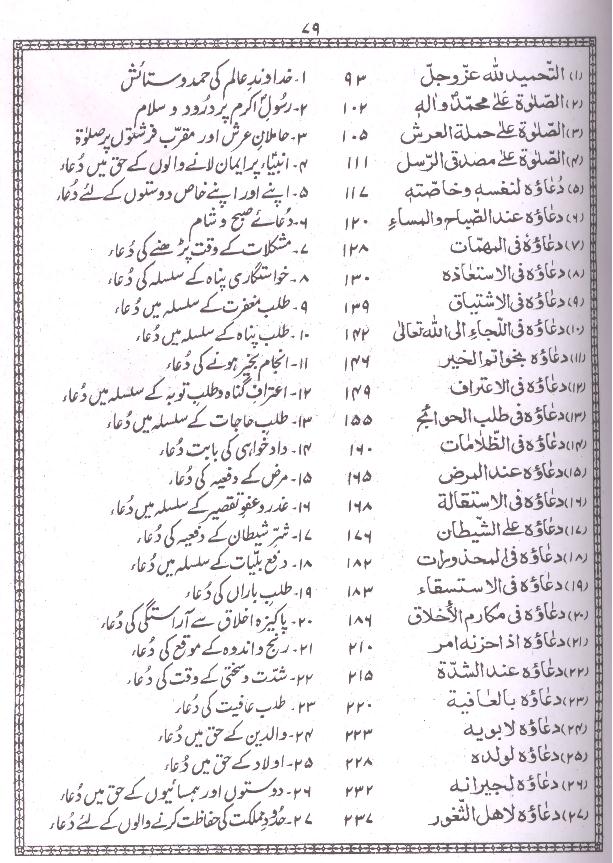 ۷۹
(۱) التّحمید للّٰہ عزّوجلّ ۹۳ ۱۔ خداوندِ عالم کی حمد و ستائش
(۲) الصّلوٰة علٰی محمّدٍ وّاٰلہٖ ۱۰۲ ۲۔ رسُولِ اکرم پر درُود و سلام
(۳) الصّلوٰة علٰی حملة العرش ۱۰۵ ۳۔ حاملانِ عرش اور مقرّب فرشتوں پر صلوٰة
(۴) الصّلوٰة علٰی مصدقی الرّسل ۱۱۱ ۴۔ انبیاءؑ پر ایمان لانے والوں کے حق میں دُعاء
(۵) دُعاؤہ لنفسہٖ وخاصّتہٖ ۱۱۷ ۵۔ اپنے اور اپنے خاص دوستوں کے لئے دُعاء
(۶) دعاؤہ عند الصّباح والمساءِ ۱۲۰ ۶۔ دُعائے صبح و شام
(۷) دعاؤہ فی المھمّات ۱۲۸ ۷۔ مشکلات کے وقت پڑھنے کی دُعاء
(۸) دعاؤہ فی الاستعاذہ ۱۳۰ ۸۔ خواستگاری پناہ کے سلسلہ کی دُعاء
(۹) دعاؤہ فی الاشتیاق ۱۳۹ ۹۔ طلب مغفرت کے سلسلہ میں دُعاء
(۱۰) دعاؤہ فی اللّجاءِ الی اللّٰہ تعالٰی ۱۴۲ ۱۰۔ طلب پناہ کے سلسلہ میں دُعاء
(۱۱) دعاؤہ بخواتم الخیر ۱۴۶ ۱۱۔ انجام بخیر ہونے کی دُعاء
(۱۲) دعاؤہ فی الاعتراف ۱۴۹ ۱۲۔ اعترافِ گناہ و طلبِ توبہ کے سلسلہ میں دُعاء
(۱۳) دعاؤہ فی طلب الحوائج ۱۵۵ ۱۳۔ طلب حاجات کے سلسلہ میں دُعاء
(۱۴) دعاؤہ فی الظّلامات ۱۶۰ ۱۴۔ داد خواہی کی بابت دُعاء
(۱۵) دعاؤہ عند المرض ۱۶۵ ۱۵۔ مرض کے دفعیہ کی دُعاء
(۱۶) دعاؤہ فی الاستقالة ۱۶۸ ۱۶۔ عذر و عفوِ تقصیر کے سلسلہ میں دُعاء
(۱۷) دعاؤہ علی الشّیطان ۱۷۶ ۱۷۔ شرِّ شیطان کے دفعیہ کی دُعاء
(۱۸) دعاؤہ فی المحذورات ۱۸۲ ۱۸۔ دفع بلیّات کے سلسلہ میں دُعاء
(۱۹) دعاؤہ فی الاستسقاء ۱۸۳ ۱۹۔ طلبِ باراں کی دُعاء
(۲۰) دعاؤہ فی مکارم الأخلاق ۱۸۶ ۲۰۔ پاکیزہ اخلاق سے آراستگی کی دُعاء
(۲۱) دعاؤہ اذا حزنہ امر ۲۱۰ ۲۱۔ رنج و اندوہ کے موقع کی دُعاء
(۲۲) دعاؤہ عند الشدّة ۲۱۵ ۲۲۔ شدّت و سختی کے وقت کی دُعاء
(۲۳) دعاؤہ بالعافیة ۲۲۰ ۲۳۔ طلب عافیت کی دُعاء
(۲۴) دعاؤہ لابویہ ۲۲۳ ۲۴۔ والدین کے حق میں دُعاء
(۲۵) دعاؤہ لولدہ ۲۲۸ ۲۵۔ اولاد کے حق میں دُعاء
(۲۶) دعاؤہ لجیرانہ ۲۳۲ ۲۶۔ دوستوں اور ہمسائیوں کے حق میں دُعاء
(۲۷) دعاؤہ لاھل الثّغور ۲۳۷ ۲۷۔ حدُودِ مملکت کی حفاظت کرنے والوں کے لئے دُعاء